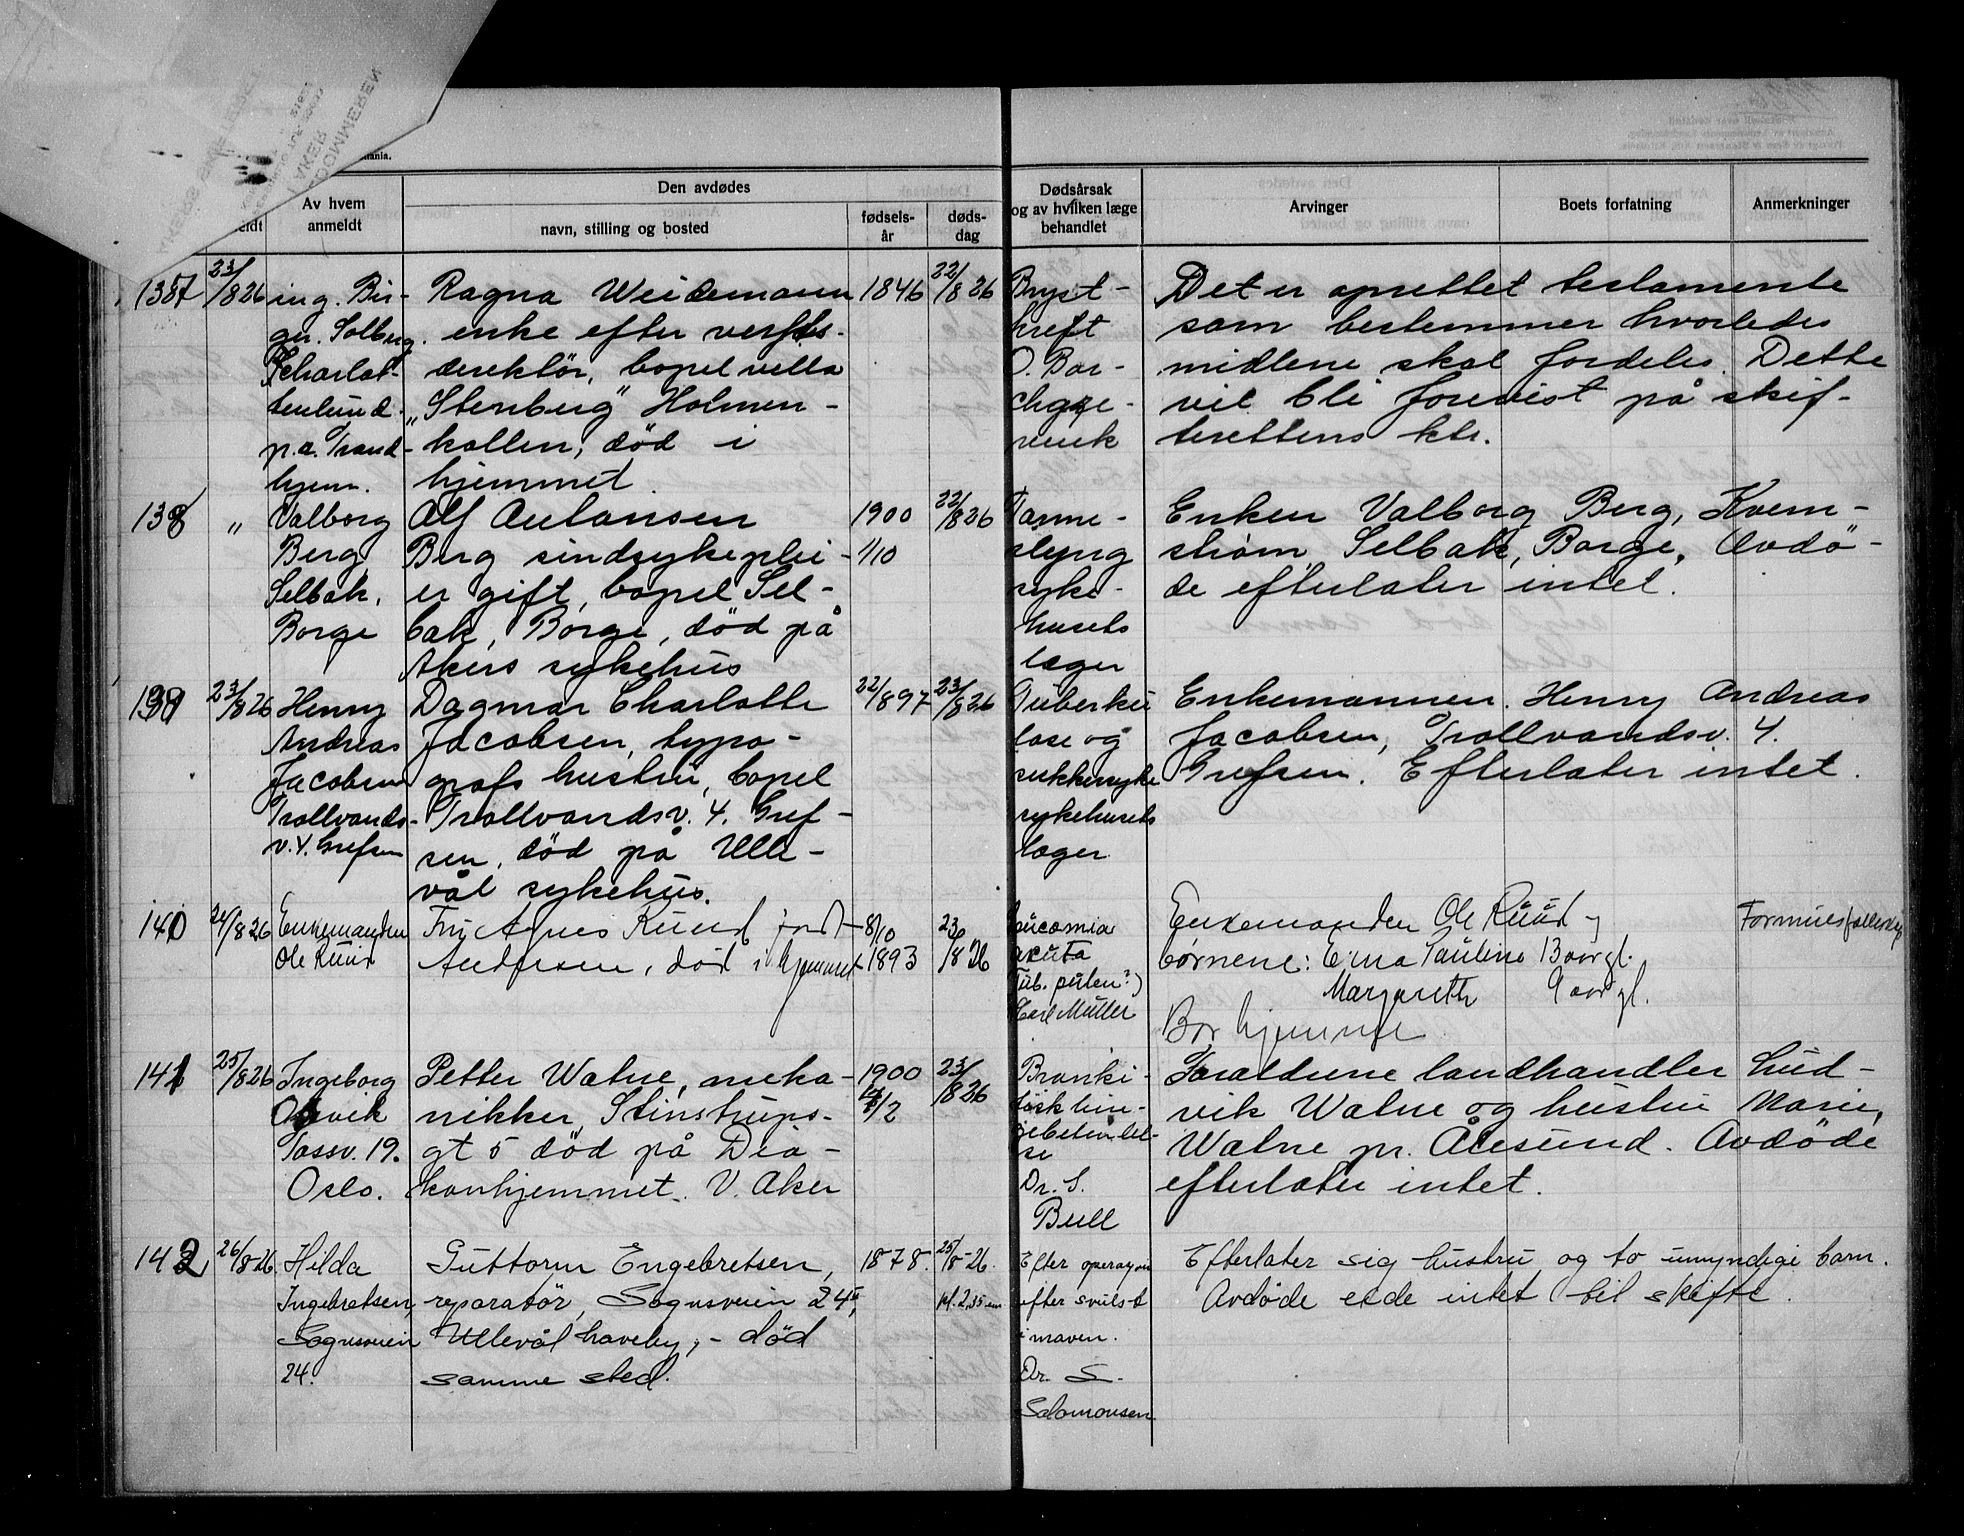 Av hvem
anmeldt
Den avdødes
navn, stilling og bosted
fødsels-
år
døds-
dag
Dødsårsak
og av hvilken læge
behandlet
Arvinger
Boets forfatning
Anmerkninger
137
23/8 26
ing. Bir-
ger. Solberg
Charlot-
tenlund
p.a. Trond-
hjem.
Ragna Weidemann
enke efter verfts-
direktör, bopel villa
"Stenberg" Holmen-
kollen, död i
hjemmet.
1846
22/8 26
Bryst-
kreft
O. Bor-
chgre-
vink
Det er oprettet testamente
som bestemmer hvorledes
midlene skal fordeles. Dette
vil bli forevist på skif-
terettens ktr.
138
"
Valborg
Berg
Selbak,
Borge
Alf Aulansen
Berg sindsykeplei-
er gift, bopel Sel-
bak, Borge, död på
Akers sykehus
1900
1/10
22/8 26
Tarme-
slyng
syke-
husets
læger
Enken Valborg Berg, Kvern-
strøm Selbak, Borge, Avdö-
de efterlater intet.
139
23/8 26
Henry
Andreas
Jacobsen
Trollvands-
v. 4. Grefsen
Dagmar Charlotte
Jacobsen, typo-
grafs hustru, bopel
Trollvandsv. 4. Gref-
sen, död på Ulle-
vål sykehus.
22/8 97
23/8 26
Tuberku
lose og
sukkersyke
sykehusets
læger
Enkemannen. Henry Andreas
Jacobsen, Trollvandsv. 4.
Grefsen. Efterlater intet.
140
24/8 26
Enkemanden
Ole Ruud
Fru Agnes Ruud født
Andersen, død i hjemmet
8/10
1893
23/8 26
Leucomia
acuta
Tub. pulm?)
Carl Müller
Enkemanden Ole Ruud
børnene: Erna Pauline 13 aar gl.
Margareth 9 aar gl.
Bor hjemme
Formuesfællesskap
141
25/8 26
Ingeborg
Tassv. 19.
Oslo.
Petter Watne, meka-
nikker, Stinstrups-
gt 5 död på Dia-
konhjemmet. V. Aker
1900
23/8 26
Bronki-
tisk lun-
gebetændel-
se
Dr. S.
Bull
Foreldrene landhandler Lud-
vik Watne og hustru Marie,
Watne pr. Ålesund. Avdöde
efterlater intet.
142
26/8-26.
Hilda
Ingebretsen,
Sognsveien
24.
Guttorm Engebretsen,
reparatør, Sognsveien 24 II,
Ullevål haveby, - død
samme sted.
1878.
25/8-26.
kl. 2,35 em
Efter operasjon
efter svulst
i maven.
Dr. S.
Salomonsen
Efterlater sig hustru og to umyndige barn.
Avdøde eide intet til skifte.